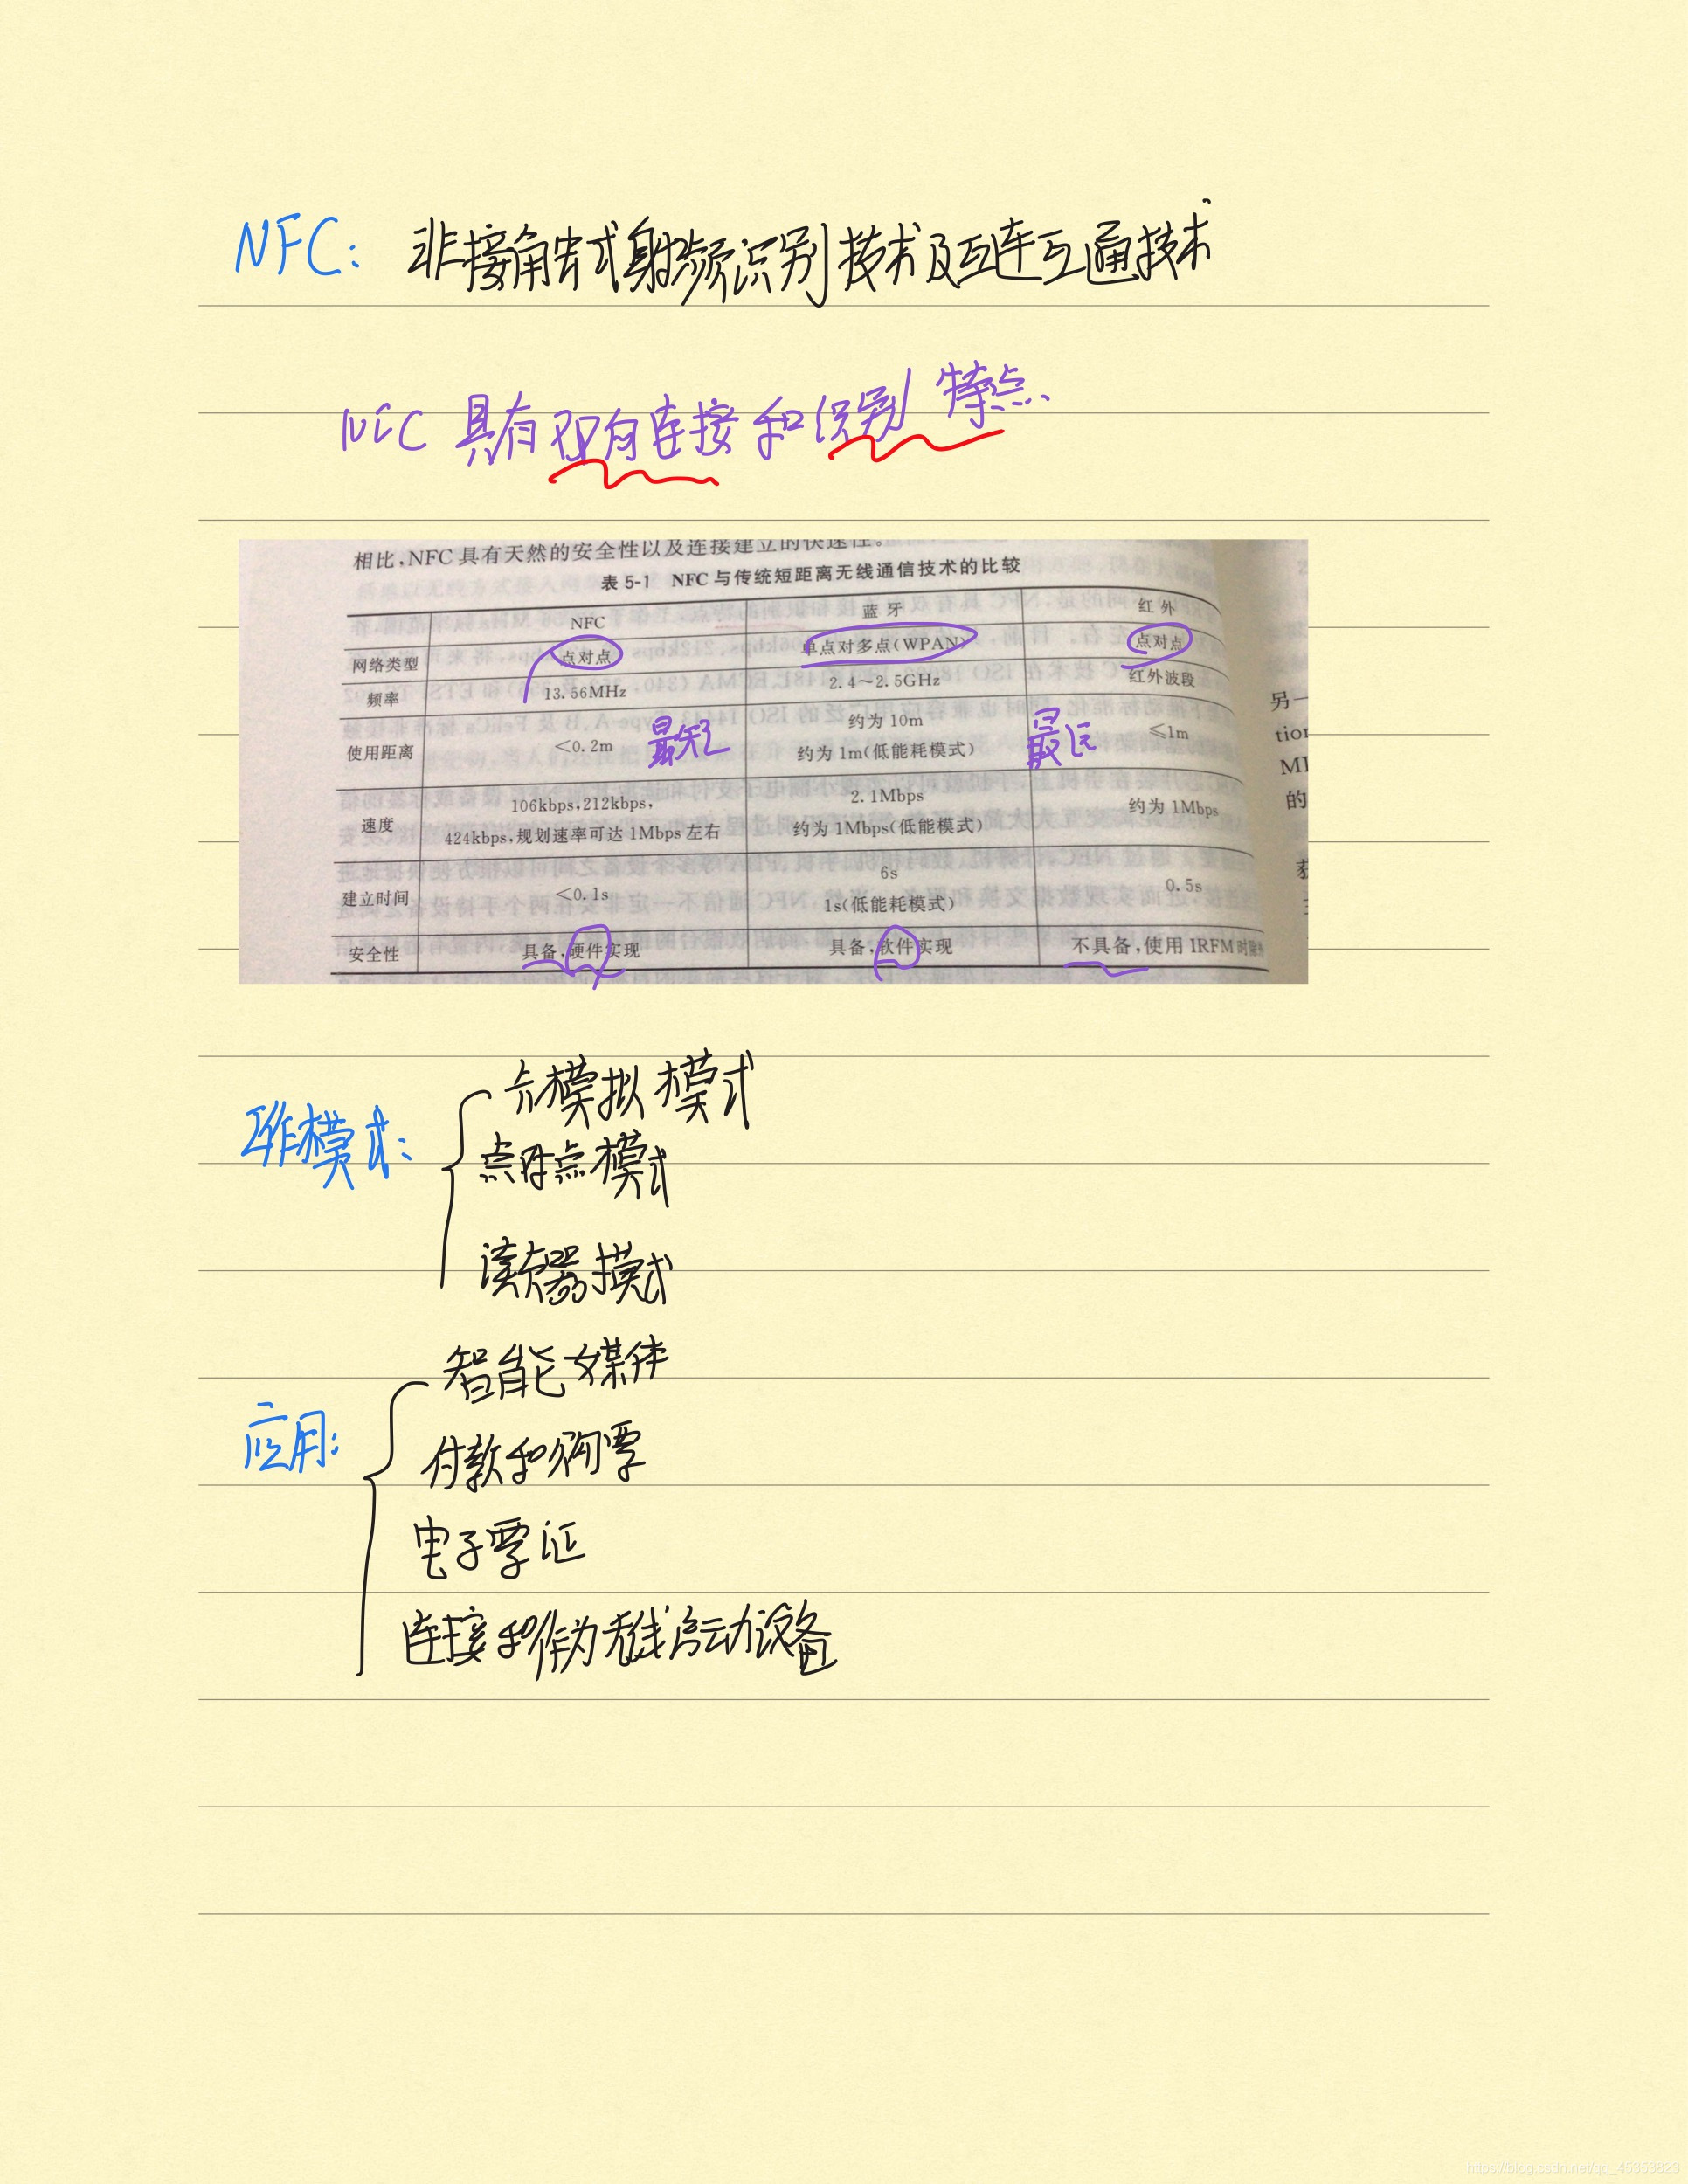 NFC: 非接触式射频识别技术及互连互通技术
NFC 具有双向连接和识别特点.
相比,NFC具有天然的安全性以及连接建立的快速性。
表 5-1 NFC 与传统短距离无线通信技术的比较
NFC 蓝牙 红外
网络类型 点对点 单点对多点(WPAN) 点对点
频率 13.56MHz 2.4~2.5GHz 红外波段
使用距离 <0.2m 最短 约为 10m 最远 ≤1m
约为 1m(低能耗模式)
速度 106kbps,212kbps, 2.1Mbps 约为 1Mbps
424kbps,规划速率可达 1Mbps 左右 约为 1Mbps(低能模式)
建立时间 <0.1s 6s 0.5s
1s(低能耗模式)
安全性 具备,硬件实现 具备,软件实现 不具备,使用 IRFM 时除外
另一
tion
MI
的
工作模式:
卡模拟模式
点对点模式
读卡器模式
应用:
智能媒体
付款和购票
电子票证
连接和作为无线启动设备
https://blog.csdn.net/qq_45353823